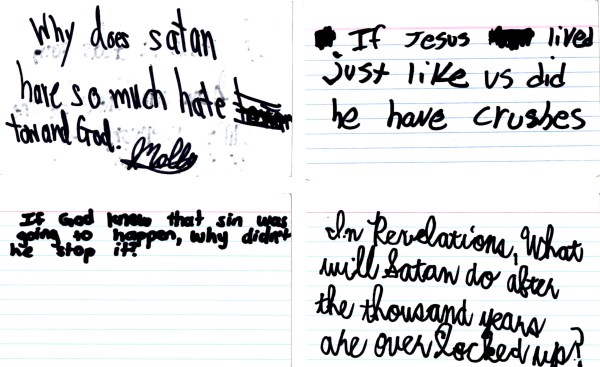 Why does satan
have so much hate
toward God. Molly
If Jesus lived
just like us did
he have crushes
If God knew that sin was
going to happen, why didn't
he stop it?
In Revelations, What
will Satan do after
the thousand years
are over locked up?